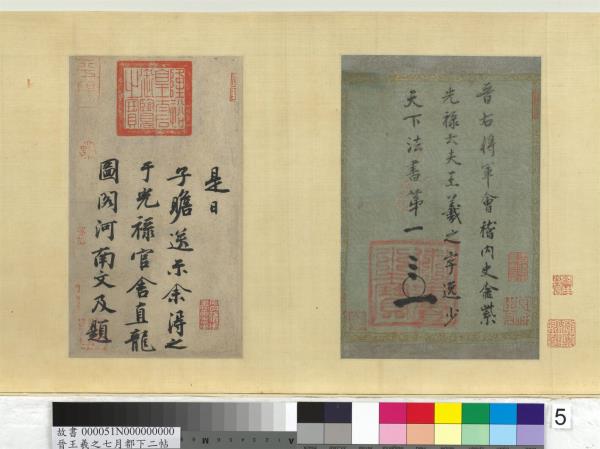 晉右將軍會稽內史金紫
光祿大夫王羲之字逸少
天下法書第一
是日
子瞻送示余得之
于光祿官舍直龍
圖閣河南文及題
5
故書 000051N000000000
晉王羲之七月都下二帖